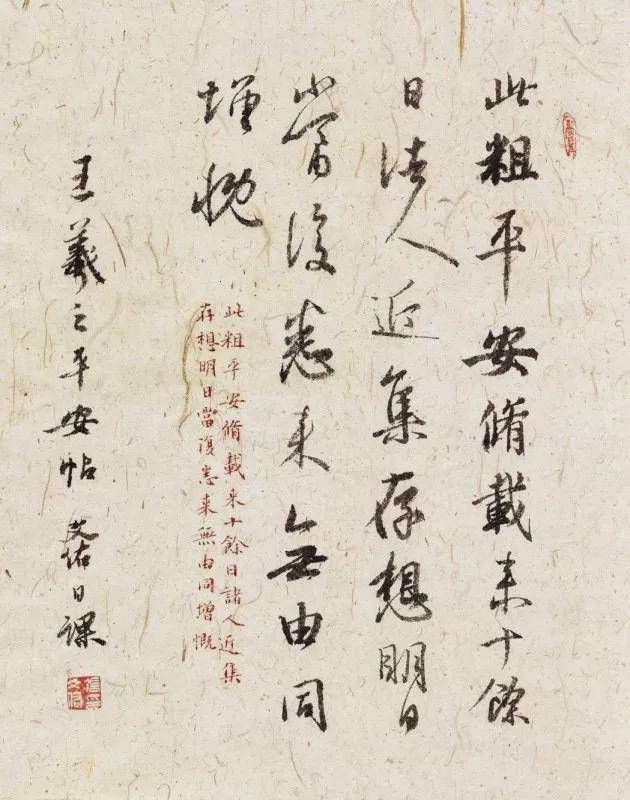 此粗平安脩載来十餘
日諸人近集存想明日
當復悉来無由同
增慨
此粗平安脩載来十餘日諸人近集
存想明日當復悉来無由同增慨
王羲之平安帖 文佑日課